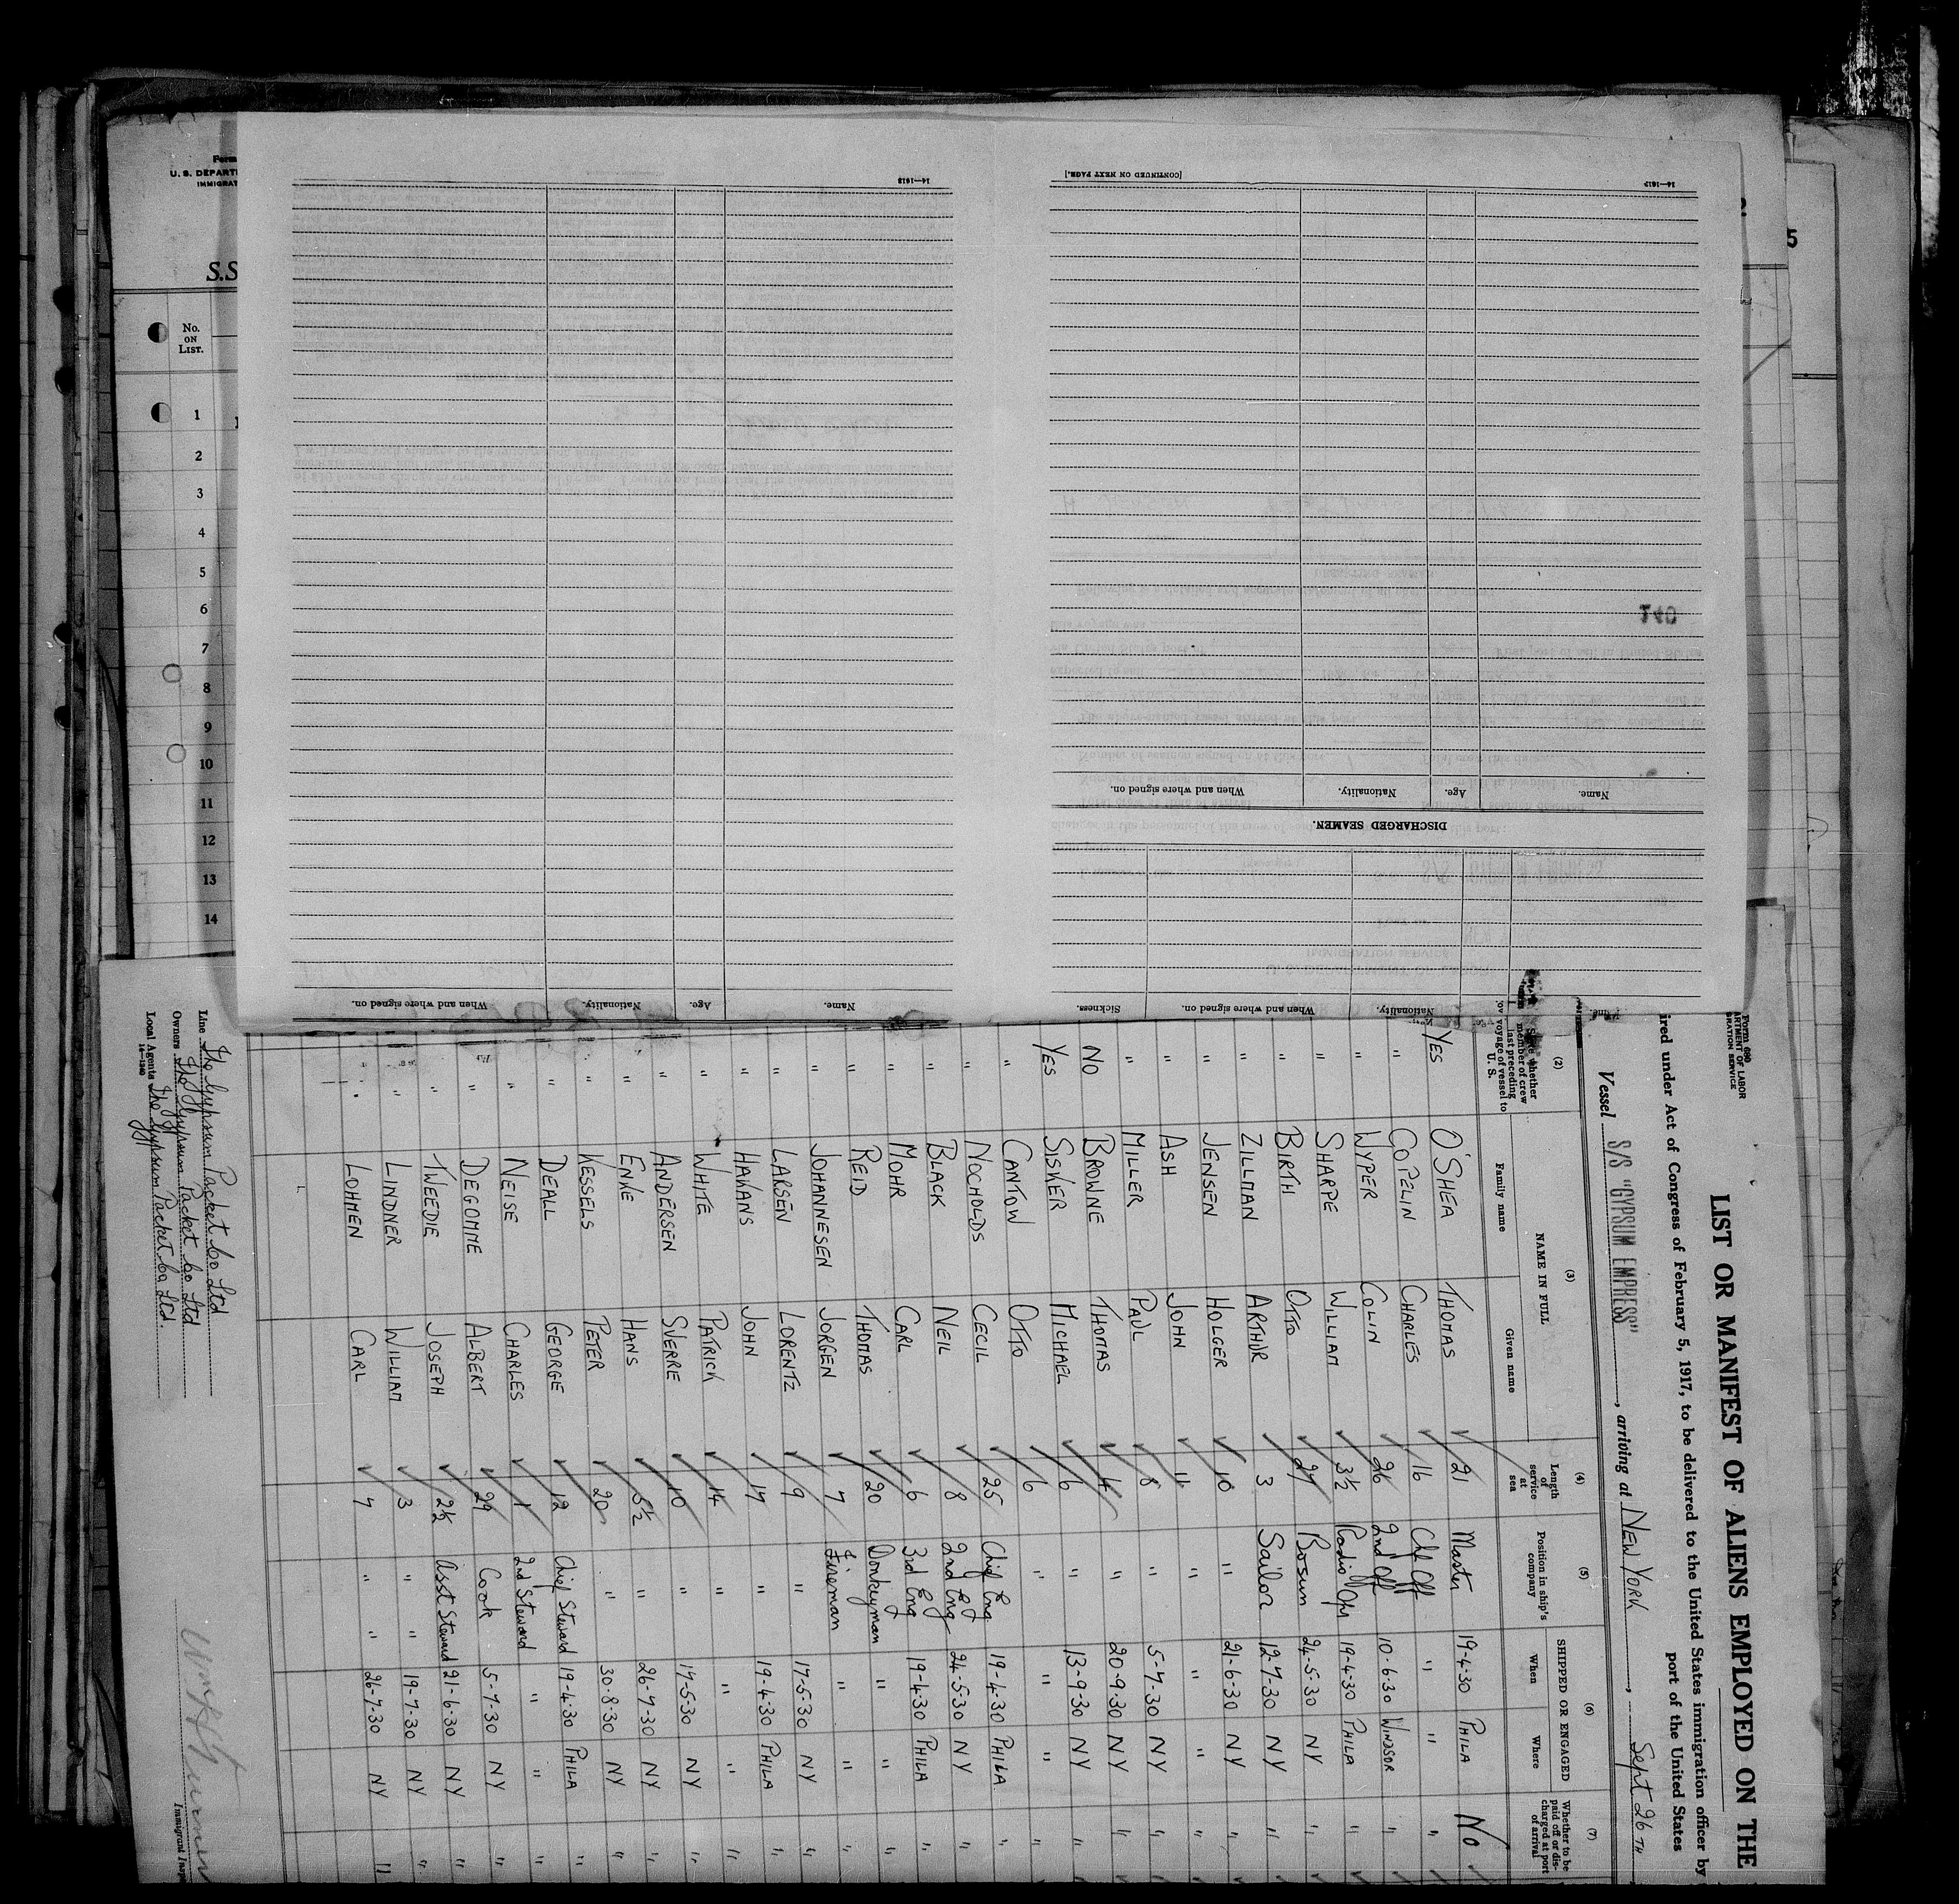 Form
U. S. DEPART
IMMIGRAT
S.S
No.
ON
LIST.
1
2
3
4
5
6
7
8
9
10
11
12
13
14
5
14—1613
[CONTINUED ON NEXT PAGE.]
14—1613
140
Name. Age. Nationality. When and where signed on.
DISCHARGED SEAMEN.
Name. Age. Nationality. When and where signed on.
Nationality. When and where signed on. Sickness.
Form 680
ARTMENT OF LABOR
GRATION SERVICE
LIST OR MANIFEST OF ALIENS EMPLOYED ON THE
ired under Act of Congress of February 5, 1917, to be delivered to the United States immigration officer by
port of the United States
Vessel S/S "GYPSUM EMPRESS", arriving at NEW YORK, Sept 26TH
(2) (3) (4) (5) (6) (7)
State whether member of crew last preceding voyage of vessel to U. S.
NAME IN FULL
Family name Given name
Length of service at sea
Position in ship's company
SHIPPED OR ENGAGED
When Where
Whether to be paid off or discharged at port of arrival
YES O'SHEA THOMAS 21 Master 19-4-30 PHILA NO
" COPELIN CHARLES 16 Chf Off " " "
" WYPER COLIN 26 2nd Off 10-6-30 WINDSOR "
" SHARPE WILLIAM 3½ Radio Opr 19-4-30 PHILA "
" BIRTH OTTO 27 Bosun 24-5-30 NY "
" ZILLMAN ARTHUR 3 Sailor 12-7-30 NY "
" JENSEN HOLGER 10 " 21-6-30 NY "
" ASH JOHN 11 " " " "
" MILLER PAUL 8 " 5-7-30 NY "
NO BROWNE THOMAS 4 " 20-9-30 NY "
YES SISKER MICHAEL 6 " 13-9-30 NY "
" CANTOW OTTO 6 " " " "
" NOCHOLDS CECIL 25 Chief Eng 19-4-30 PHILA "
" BLACK NEIL 8 2nd Eng 24-5-30 NY "
" MOHR CARL 6 3rd Eng 19-4-30 PHILA "
" REID THOMAS 20 Donkeyman " " "
" JOHANNESEN JORGEN 7 Fireman " " "
" LARSEN LORENTZ 9 " 17-5-30 NY "
" HAWANS JOHN 17 " 19-4-30 PHILA "
" WHITE PATRICK 14 " " " "
" ANDERSEN SVERRE 10 " 17-5-30 NY "
" ENKE HANS 5½ " 26-7-30 NY "
" KESSELS PETER 20 " 30-8-30 NY "
" DEALL GEORGE 12 Chief Steward 19-4-30 PHILA "
" NEISE CHARLES 1 2nd Steward " " "
" DEGOMME ALBERT 29 Cook 5-7-30 NY "
" TWEEDIE JOSEPH 2½ Asst Steward 21-6-30 NY "
" LINDNER WILLIAM 3 " 19-7-30 NY "
" LOHMEN CARL 7 " 26-7-30 NY "
Line The Gypsum Packet Co Ltd
Owners The Gypsum Packet Co Ltd
Local Agents The Gypsum Packet Co Ltd.
14—1240
Immigrant Inspe